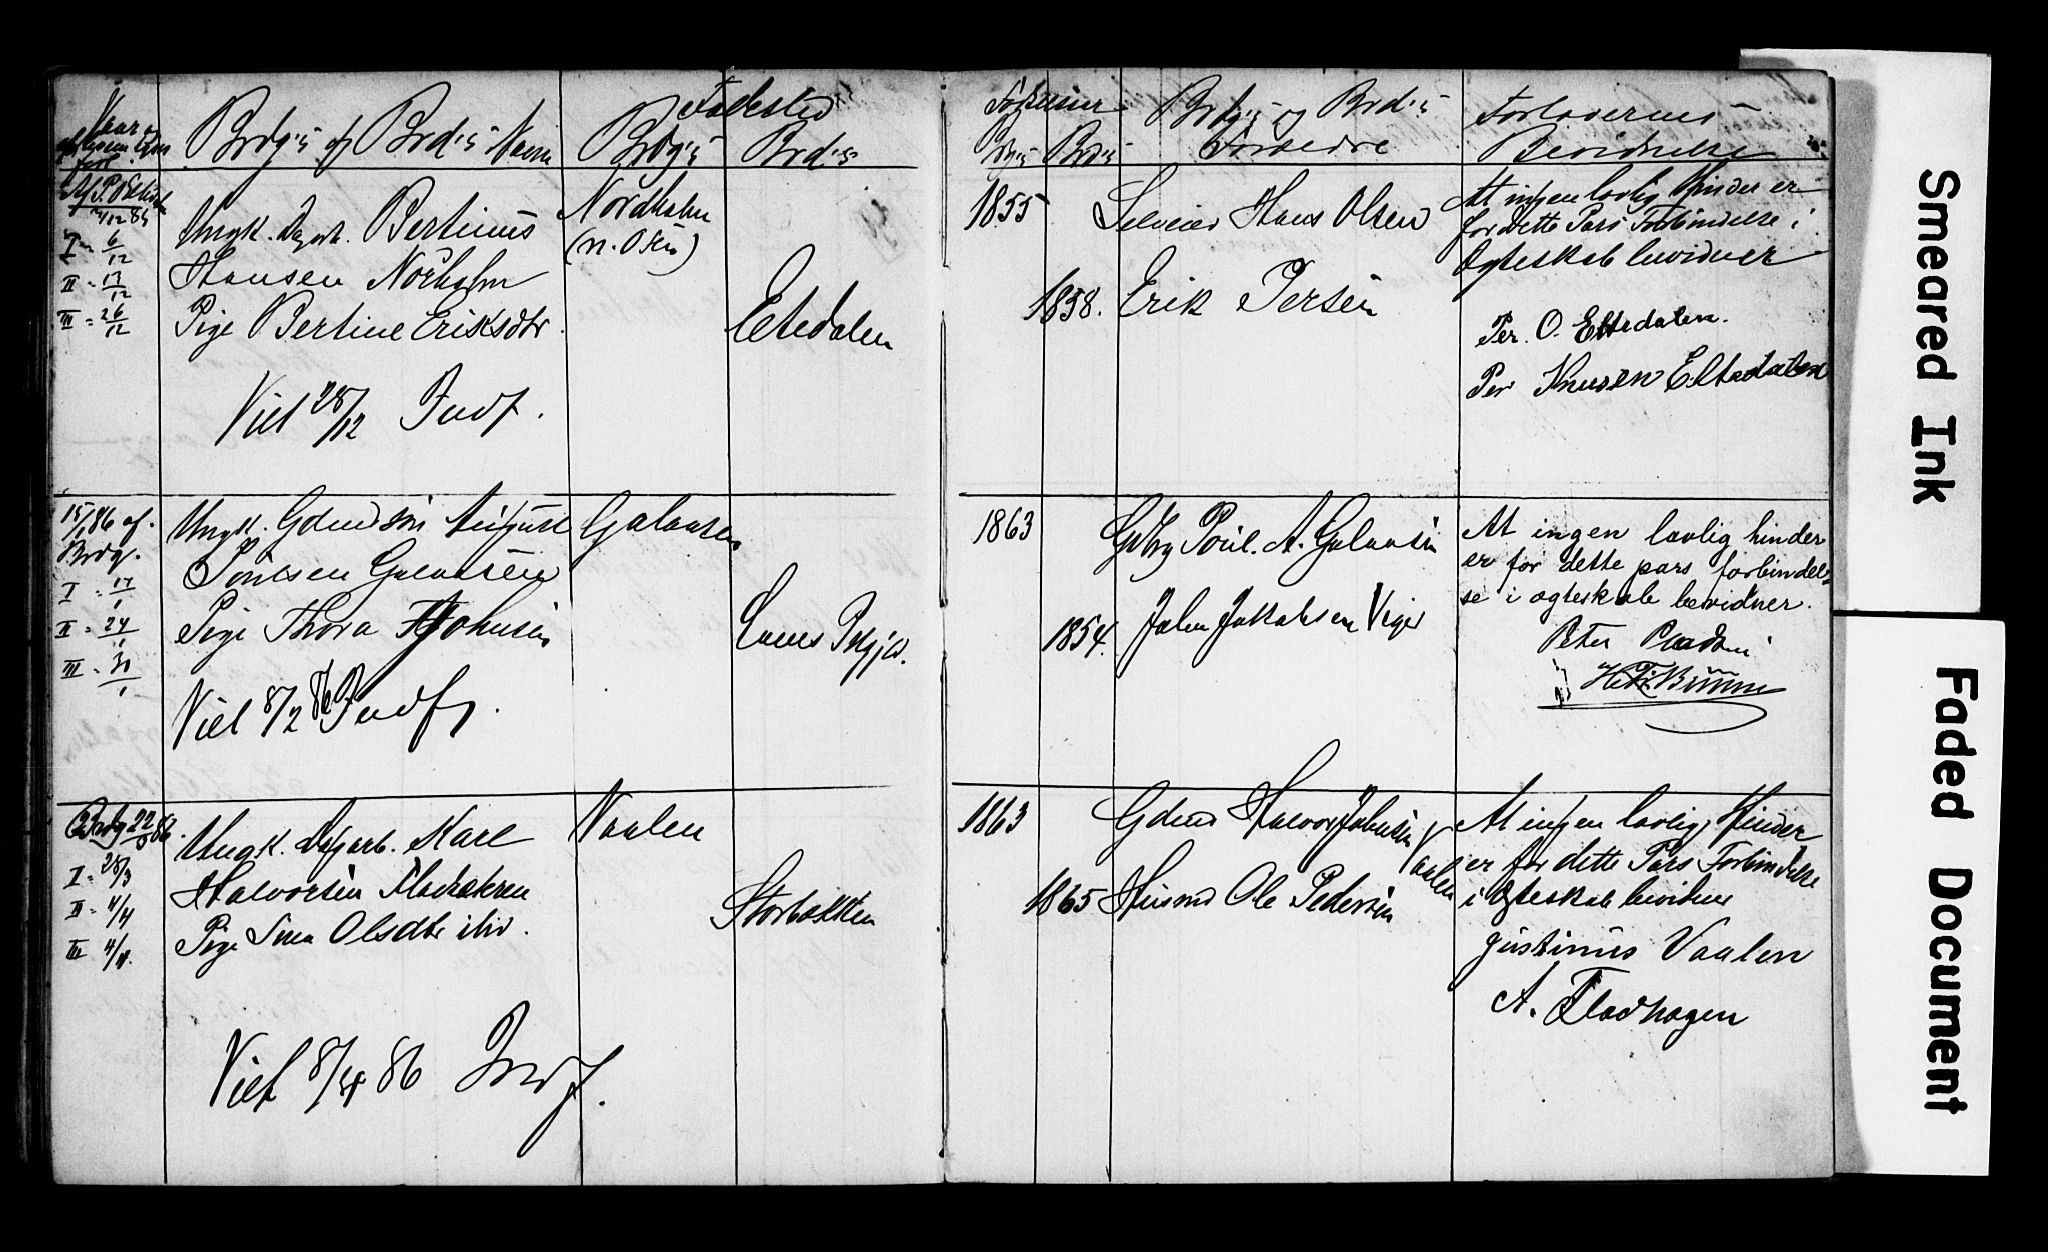 Naar og
af hvem Lysn
forl.
Brdg.s og Brd.s Navn
Fødested
Brdg.s
Brd.s
Fødselsaar
Brdg.s
Brd.s
Brdg.s og Brd.s
Forædre
Forlovernes
Bevidnelse
Af P.
2/12 85
I = 6/12
II = 13/12
III = 26/12
Ungk. Dagarb. Bertinus
Hansen Norholm
Pige Bertine Eriksdtr.
Viet 28/12 Indf.
Nordholm
(n. Osen)
Eltedalen
1855
1858.
Selveier Hans Olsen
Erik Persen
At ingen lovlig Hinder er
for dette Pars Forbindelse i
Ægteskab bevidner
Per. O. Eltedalen.
Per Knudsen Eltedalen
15/1 86 af.
Brdg.
I = 17/1
II = 24/1
III = 30/1
Ungk. Gdmdsøn August
Poulsen Galaasen
Pige Thora Johnsen
Viet 8/2 86 Indf.
Galaasen
Prgjld.
1863
1854.
Gdbr Poul. A. Galaasen
John Jakobsen Viger
At ingen lovlig hinder
er for dette pars forbindel-
se i ægteskab bevidner.
Peter
1863
1865
Brdg 22/3 86.
I = 28/3
II = 4/4
III 4/4.
Ungk. Dagarb. Karl
Halvorsen Fladaakren
Pige Olsdtr ibid.
Viet 8/4 86 Indf.
Vaalen
Storbækken
Gdmd Halvor Johnsen
Vaalen
Husmd Ole Pedersen
At ingen lovlig Hinder
er for dette Pars Forbindelse
i Ægteskab bevidne
Justinus Vaalen
A. Fladhagen
Smeared Ink
Faded Document